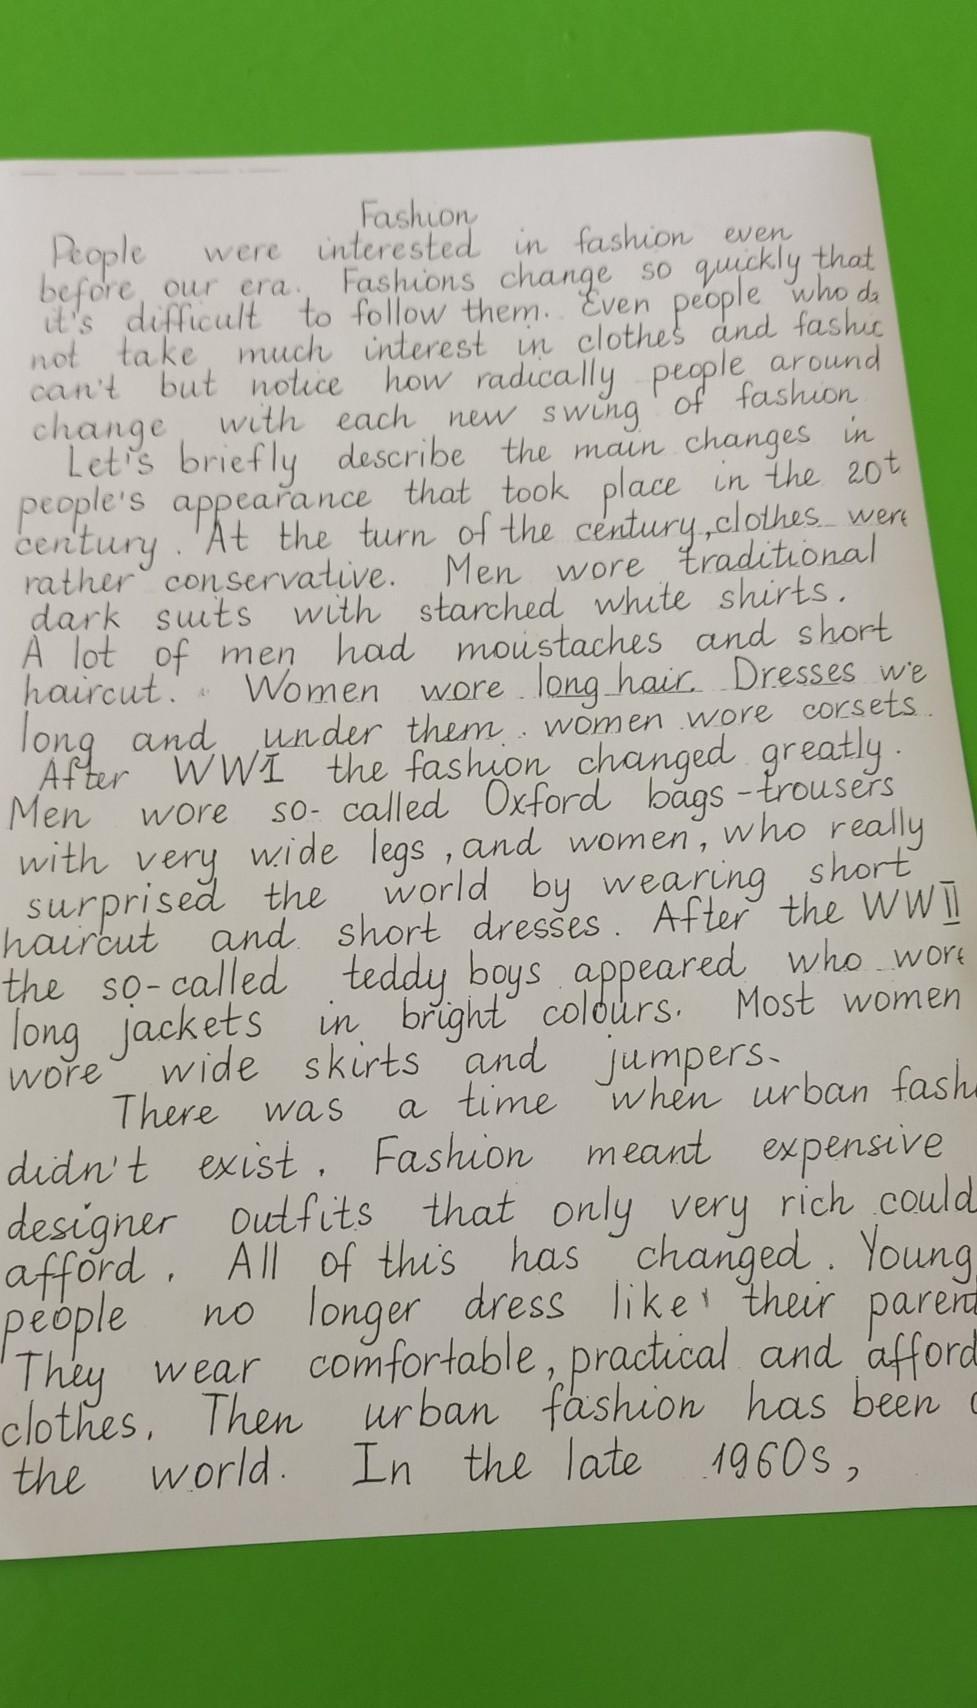 Fashion
People were interested in fashion even
before our era. Fashions change so quickly that
it's difficult to follow them. Even people who do
not take much interest in clothes and fashio
can't but notice how radically people around
change with each new swing of fashion
Let's briefly describe the main changes in
people's appearance that took place in the 20t
century. At the turn of the century, clothes were
rather conservative. Men wore traditional
dark suits with starched white shirts.
A lot of men had moustaches and short
haircut. Women wore long hair. Dresses we
long and under them women wore corsets.
After WWI the fashion changed greatly.
Men wore so-called Oxford bags - trousers
with very wide legs, and women, who really
surprised the world by wearing short
haircut and short dresses. After the WWII
the so-called teddy boys appeared who wore
long jackets in bright colours. Most women
wore wide skirts and jumpers.
There was a time when urban fash
didn't exist. Fashion meant expensive
designer outfits that only very rich could
afford. All of this has changed. Young
people no longer dress like their parent
They wear comfortable, practical and afford
clothes. Then urban fashion has been
the world. In the late 1960s,